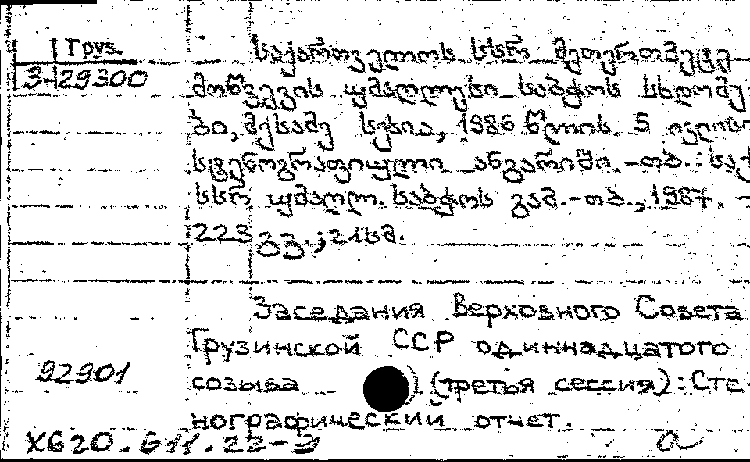 Груз.
3-29300
საქართველოს სსრ მეთერთმეტე
მოწვევის უმაღლესი საბჭოს სხდომე
ბი, მესამე სესია, 1986 წლის 5 ივლისი
სტენოგრაფიული ანგარიში. -თბ.: საქ
სსრ უმაღლ. საბჭოს გამ.-თბ., 1987. -
223 გვ.; 21სმ.
Заседания Верховного Совета
Грузинской ССР одиннадцатого
92901
созыва (третья сессия): Сте
нографический отчет.
Х620.611.22-3 а